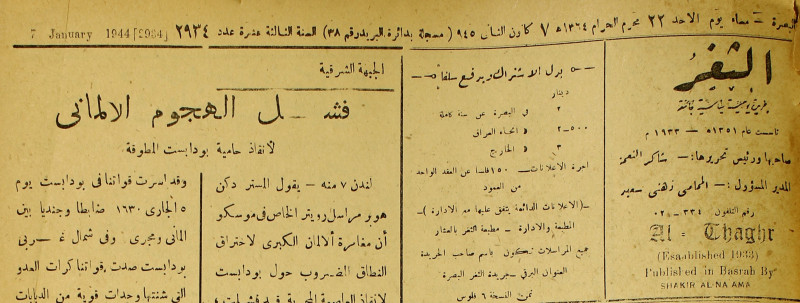 البصرة — مساء يوم الاحد ٢٢ محرم الحرام ١٣٦٤ هـ ٧ كانون الثاني ٩٤٥ ( مسجلة بدائرة البريد رقم ٣٨) السنة الثالثة عشرة عدد ٢٩٣٤
7 January 1944 [2934]
الثغر
جريدة يومية سياسية
تأسست عام ١٣٥١ هـ — ١٩٣٣ م
صاحبها ورئيس تحريرها:— شاكر النعمة
المدير المسؤول:— المحامي زهني سعيد
رقم التلفون ٣٣٤ - ٠٢
Al - Thaghr
(Esnablished 1933)
Published in Basrah By
SHAKIR AL-NAAMA
بدل الاشتراك ويدفع سلفا
دينار
٢ في البصرة عن سنة كاملة
٢-٥٠٠ » انحاء العراق
٣ » الخارج
اجرة الاعلانات — ١٥٠ فلسا عن العقد الواحد
من العمود
—(الاعلانات الدائمة يتفق عليها مع الادارة )—
المطبعة والادارة — مطبعة الثغر بالعشار
جميع المراسلات تكون باسم صاحب الجريدة
العنوان البرقي —جريدة الثغر البصرة
ثمن النسخة ٦ فلوس
الجبهة الشرقية
فشـل الهجوم الالماني
لانقاذ حامية بودابست المطوقة
لندن ٧ منه — يقول المستر دكن
هوبر مراسل رويتر الخاص في موسكو
أن مغامرة ألمان الكبرى لاختراق
النطاق المضروب حول بودابست
لانقاذ العاصمة المجرية قد فشلت،
وقد اسرت قواتنا في بودابست يوم
٥ الجاري ١٦٣٠ ضابطا وجنديا بين
الماني ومجري. وفي شمال غـربي
بودابست صدت قواتنا كرات العدو
التي شنتها وحدات قوية من الدبابات